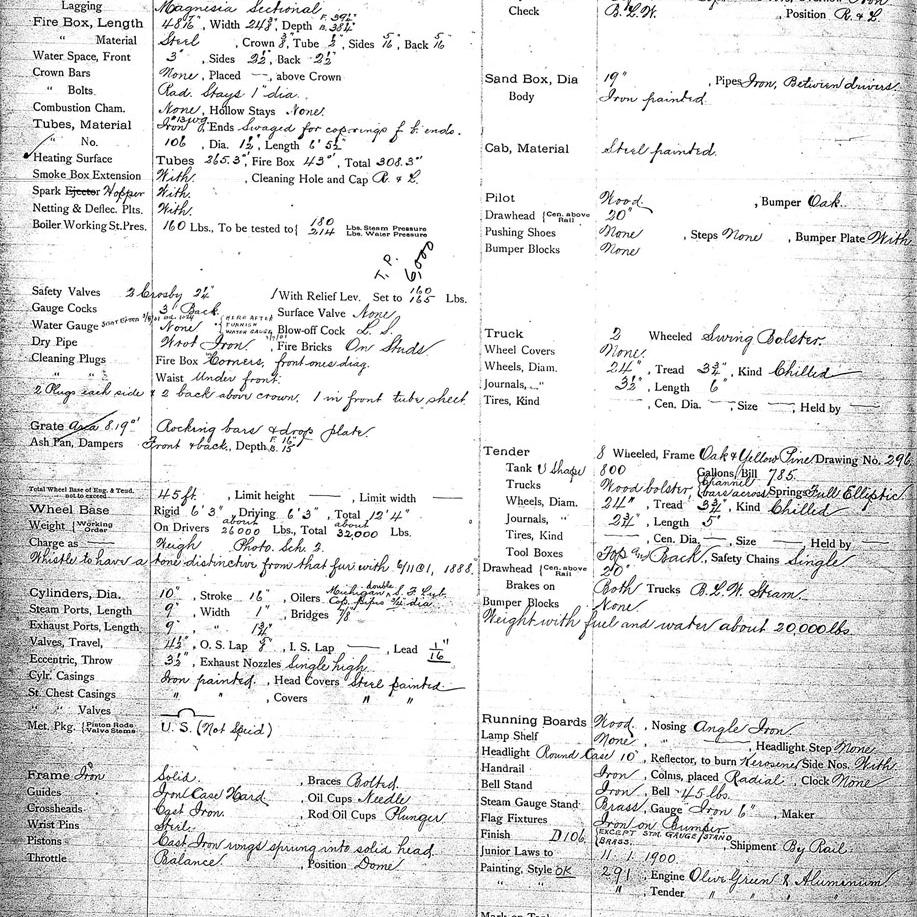 Lagging Magnesia Sectional
Fire Box, Length 48 3/16", Width 24 3/8", Depth F. 39 1/2" B. 38 1/2"
" Material Steel, Crown 3/8, Tube 1/2", Sides 5/16, Back 5/16
Water Space, Front 3", Sides 2 1/2", Back 2 1/2"
Crown Bars None, Placed —, above Crown
" Bolts Rad. Stays 1" dia.
Combustion Cham. None, Hollow Stays None.
Tubes, Material Iron #13 W.G., Ends Swaged for cop. rings f. & b. ends.
" No. 106, Dia. 1 1/2", Length 6' 5 1/2"
Heating Surface Tubes 265.3", Fire Box 43", Total 308.3"
Smoke Box Extension With. , Cleaning Hole and Cap R. & L.
Spark Ejector Hopper With.
Netting & Deflec. Plts. With.
Boiler Working St. Pres. 160 Lbs., To be tested to { 180 Lbs. Steam Pressure 214 Lbs. Water Pressure
T. P. 6,000
Safety Valves 2 Crosby 2 1/4" / With Relief Lev. Set to 160 165 Lbs.
Gauge Cocks 3 Back. Surface Valve None
Water Gauge None { HERE AFTER FURNISH WATER GAUGE Blow-off Cock L. S.
Dry Pipe Wrot Iron. , Fire Bricks On Studs
Cleaning Plugs Fire Box Corners, front ones diag.
" " Waist Under front.
2 Plugs each side & 2 back above crown. 1 in front tube sheet.
Grate area 8.19 Rocking bars & drop plate.
Ash Pan, Dampers Front & back, Depth F. 16" B. 15"
Total Wheel Base of Eng. & Tend. not to exceed 45 ft. , Limit height — , Limit width —
Wheel Base Rigid 6' 3", Driving 6' 3", Total 12' 4"
Weight { Working Order On Drivers about 26000 Lbs., Total about 32,000 Lbs.
Charge as — Weigh Photo. Sch. 2.
Whistle to have a tone distinctive from that fur. with 6/11 @ 1, 1888.
Cylinders, Dia. 10", Stroke 16", Oilers Michigan double S. F. Lub. Cop. pipes 3/4" dia.
Steam Ports, Length 9", Width 1", Bridges 7/8"
Exhaust Ports, Length 9", " 1 3/4"
Valves, Travel, 4 1/2", O. S. Lap 5/8", I. S. Lap —, Lead 1/16"
Eccentric, Throw 3 1/2", Exhaust Nozzles Single high
Cylr. Casings Iron painted, Head Covers Steel painted
St. Chest Casings " " , Covers " "
" Valves
Met. Pkg. { Piston Rods Valve Stems U. S. (Not Spcid)
Frame Iron Solid. , Braces Bolted.
Guides Iron Case Hard. , Oil Cups Needle
Crossheads Cast Iron. , Rod Oil Cups Plunger.
Wrist Pins Steel.
Pistons Cast Iron rings sprung into solid head.
Throttle Balance. , Position Dome
Check B. L. W. , Position R. & L.
Sand Box, Dia 19" , Pipes Iron, Between drivers.
Body Iron painted.
Cab, Material Steel painted.
Pilot Wood. , Bumper Oak.
Drawhead { Cen. above Rail 20"
Pushing Shoes None , Steps None , Bumper Plate With
Bumper Blocks None
Truck 2 Wheeled Swing Bolster.
Wheel Covers None.
Wheels, Diam. 24", Tread 3 3/4", Kind Chilled
Journals, " 3 1/2", Length 6"
Tires, Kind —, Cen. Dia. —, Size —, Held by —
Tender 8 Wheeled, Frame Oak & Yellow Pine / Drawing No. 296
Tank U Shape 800 Gallons / Bill 785.
Trucks Wood bolster, Channel bars across, Springs Full Elliptic
Wheels, Diam. 24", Tread 3 3/4", Kind Chilled
Journals, " 2 3/4", Length 5"
Tires, Kind —, Cen. Dia. —, Size —, Held by —
Tool Boxes Top and Back, Safety Chains Single
Drawhead { Cen. above Rail 20"
Brakes on Both Trucks B. L. W. Steam.
Bumper Blocks None.
Weight with fuel and water about 20,000 lbs.
Running Boards Wood. , Nosing Angle Iron.
Lamp Shelf None. , " —, Headlight Step None
Headlight Round Case 10", Reflector, to burn Kerosene / Side Nos. With
Handrail Iron, Colmns, placed Radial , Clock None
Bell Stand Iron, Bell 45 lbs.
Steam Gauge Stand Brass, Gauge Iron 6", Maker
Flag Fixtures Iron on Bumper
Finish D 106. (EXCEPT STM. GAUGE STAND BRASS. , Shipment By Rail.
Junior Laws to 11. 1. 1900.
Painting, Style OK 291, Engine Olive Green & Aluminum
" " ", Tender " " "